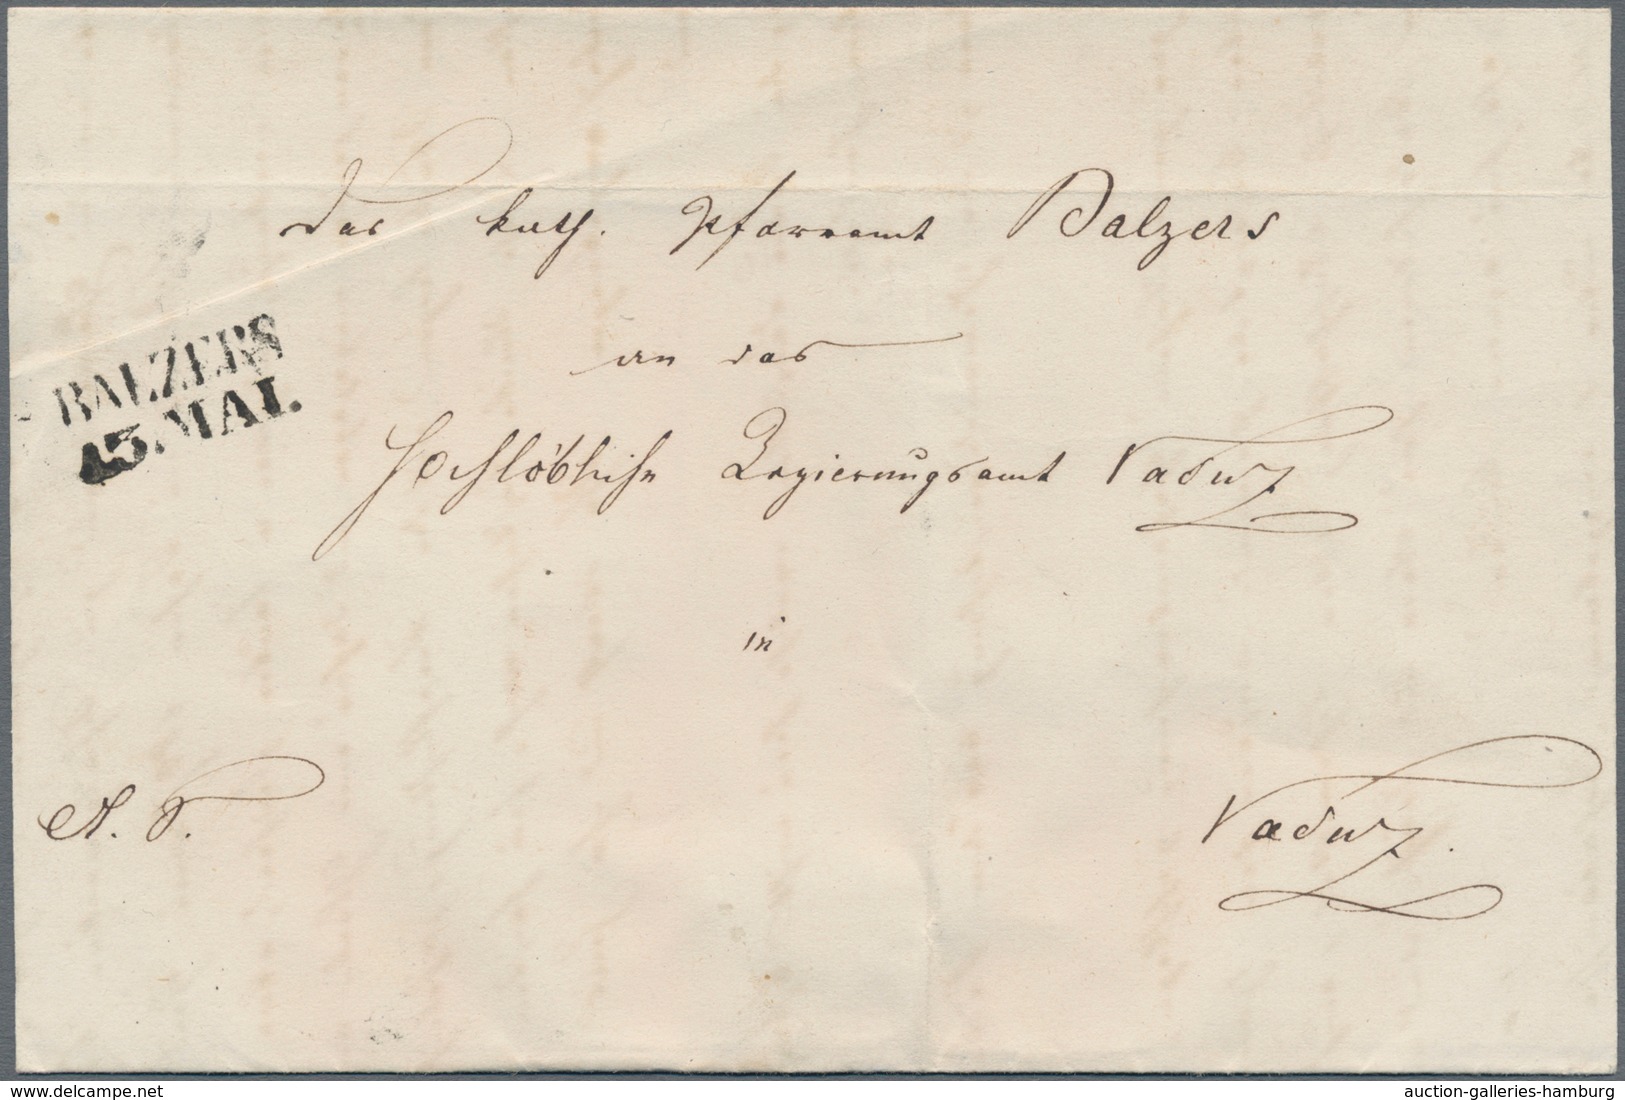 Das kath. Pfarramt Balzers
BALZERS
13. MAI.
an das
Hochlöbliche Regierungsamt Vaduz
in
Vaduz.
delcampe.net
auction-galleries-hamburg